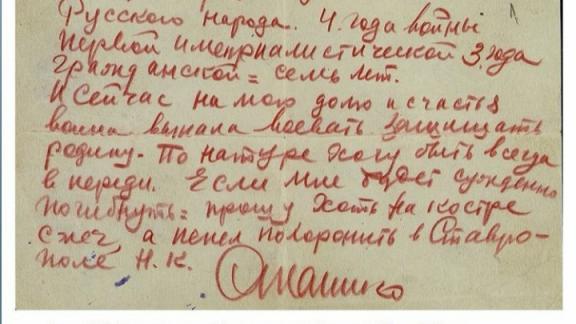 Русского народа. 4 года войны
первой империалистической 3 года
гражданской = семь лет.
И сейчас на мою долю и счастья
воина выпала воевать защищать
родину. По натуре хочу быть всегда
в переди. Если мне будет сужденно
погибнуть = прошу хоть на костре
сжеч, а пепел похоронить в Ставро-
поле Н.К.